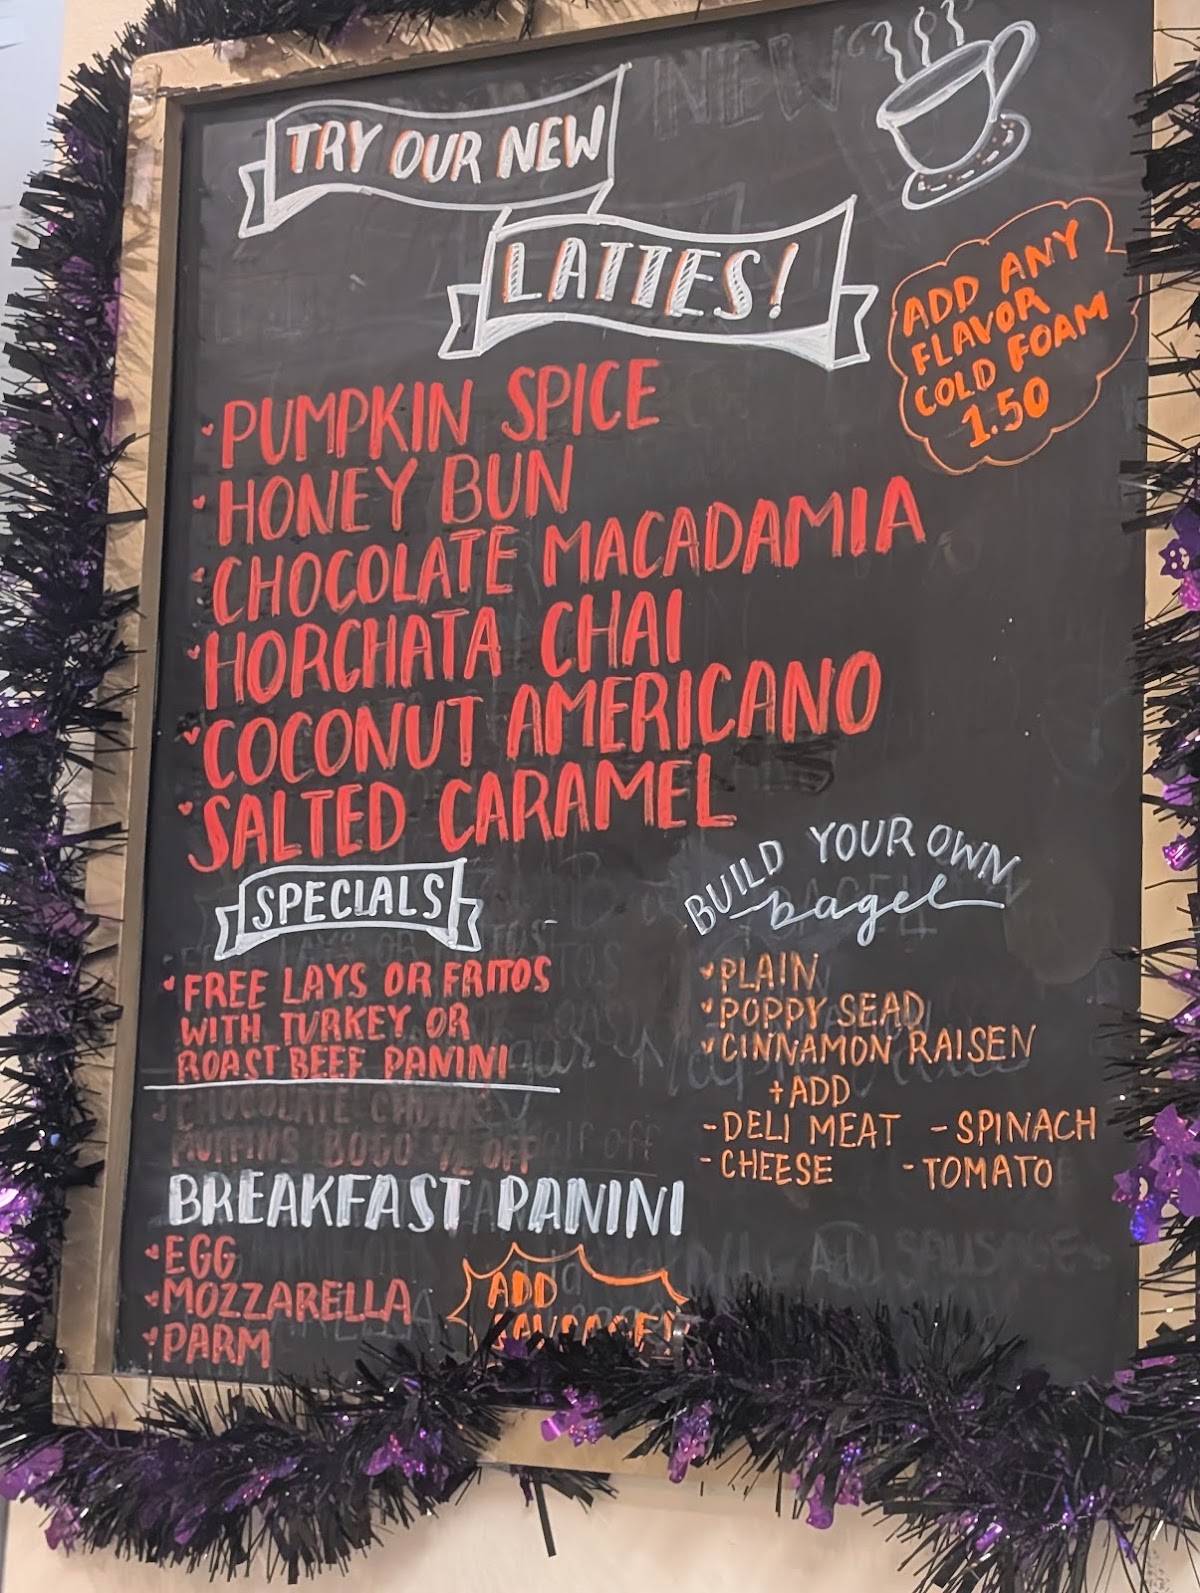 TRY OUR NEW
LATTES!
ADD ANY
FLAVOR
COLD FOAM
1.50
PUMPKIN SPICE
HONEY BUN
CHOCOLATE MACADAMIA
HORCHATA CHAI
COCONUT AMERICANO
SALTED CARAMEL
SPECIALS
FREE LAYS OR FRITOS
WITH TURKEY OR
ROAST BEEF PANINI
BREAKFAST PANINI
EGG
MOZZARELLA
PARM
ADD
SAUSAGE!
BUILD YOUR OWN
bagel
PLAIN
POPPY SEAD
CINNAMON RAISEN
+ADD
-DELI MEAT -SPINACH
-CHEESE -TOMATO